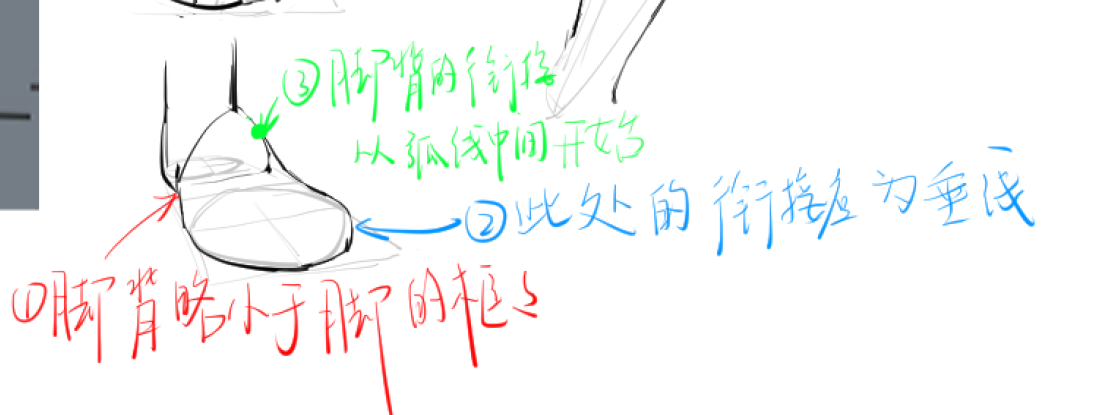 ③脚背的衔接
从弧线中间开始
②此处的衔接应为垂线
①脚背略小于脚的框